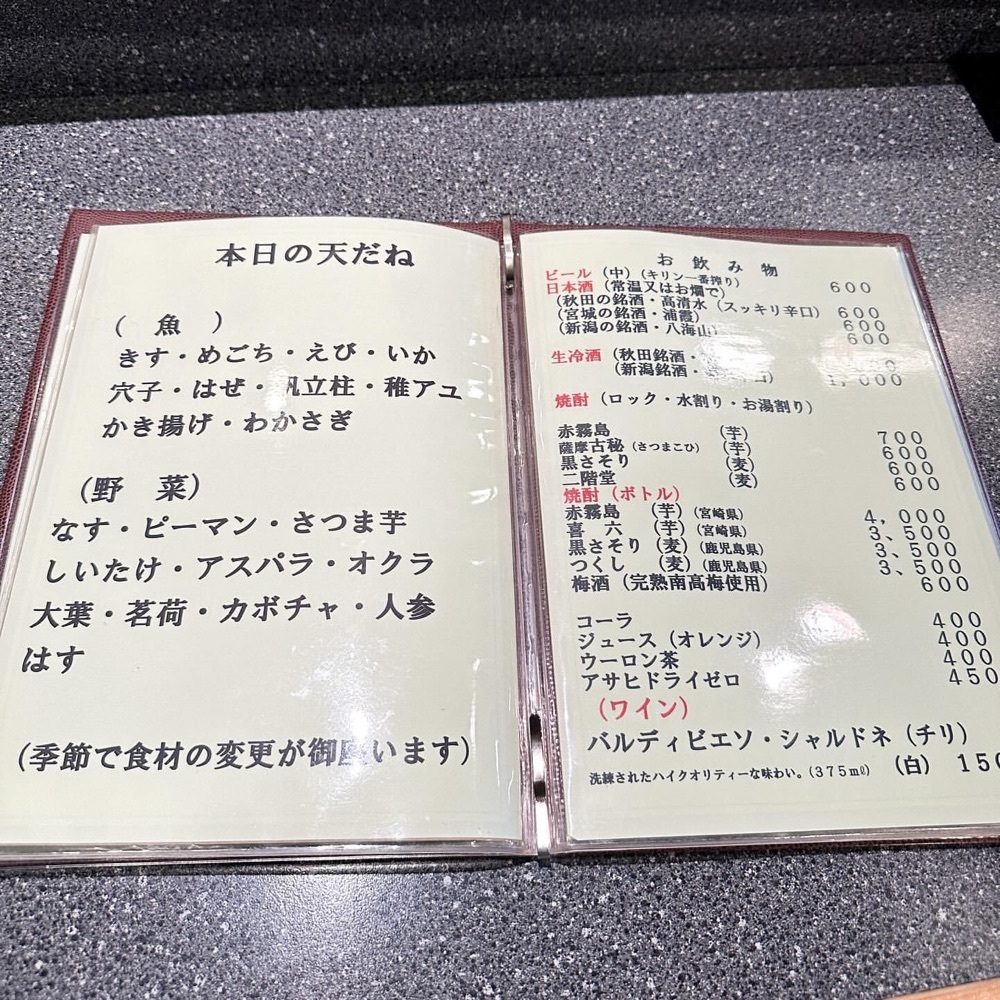 本日の天だね
(魚)
きす・めごち・えび・いか
穴子・はぜ・帆立柱・稚アユ
かき揚げ・わかさぎ
(野菜)
なす・ピーマン・さつま芋
しいたけ・アスパラ・オクラ
大葉・茗荷・カボチャ・人参
はす
(季節で食材の変更が御座います)
お飲み物
ビール(中)(キリン一番搾り) 600
日本酒(常温又はお燗で)
(秋田の銘酒・高清水(スッキリ辛口) 600
(宮城の銘酒・浦霞) 600
(新潟の銘酒・八海山) 600
生冷酒(秋田銘酒・
(新潟銘酒・ 1,000
焼酎(ロック・水割り・お湯割り)
赤霧島 (芋) 700
薩摩古秘(さつまこひ) (芋) 600
黒さそり (麦) 600
二階堂 (麦) 600
焼酎(ボトル)
赤霧島 (芋)(宮崎県) 4、000
喜六 (芋)(宮崎県) 3、500
黒さそり (麦)(鹿児島県) 3、500
つくし (麦)(鹿児島県) 3、500
梅酒(完熟南高梅使用) 600
コーラ 400
ジュース(オレンジ) 400
ウーロン茶 400
アサヒドライゼロ 450
(ワイン)
バルディビエソ・シャルドネ(チリ)
洗練されたハイクオリティーな味わい。(375ml) (白)